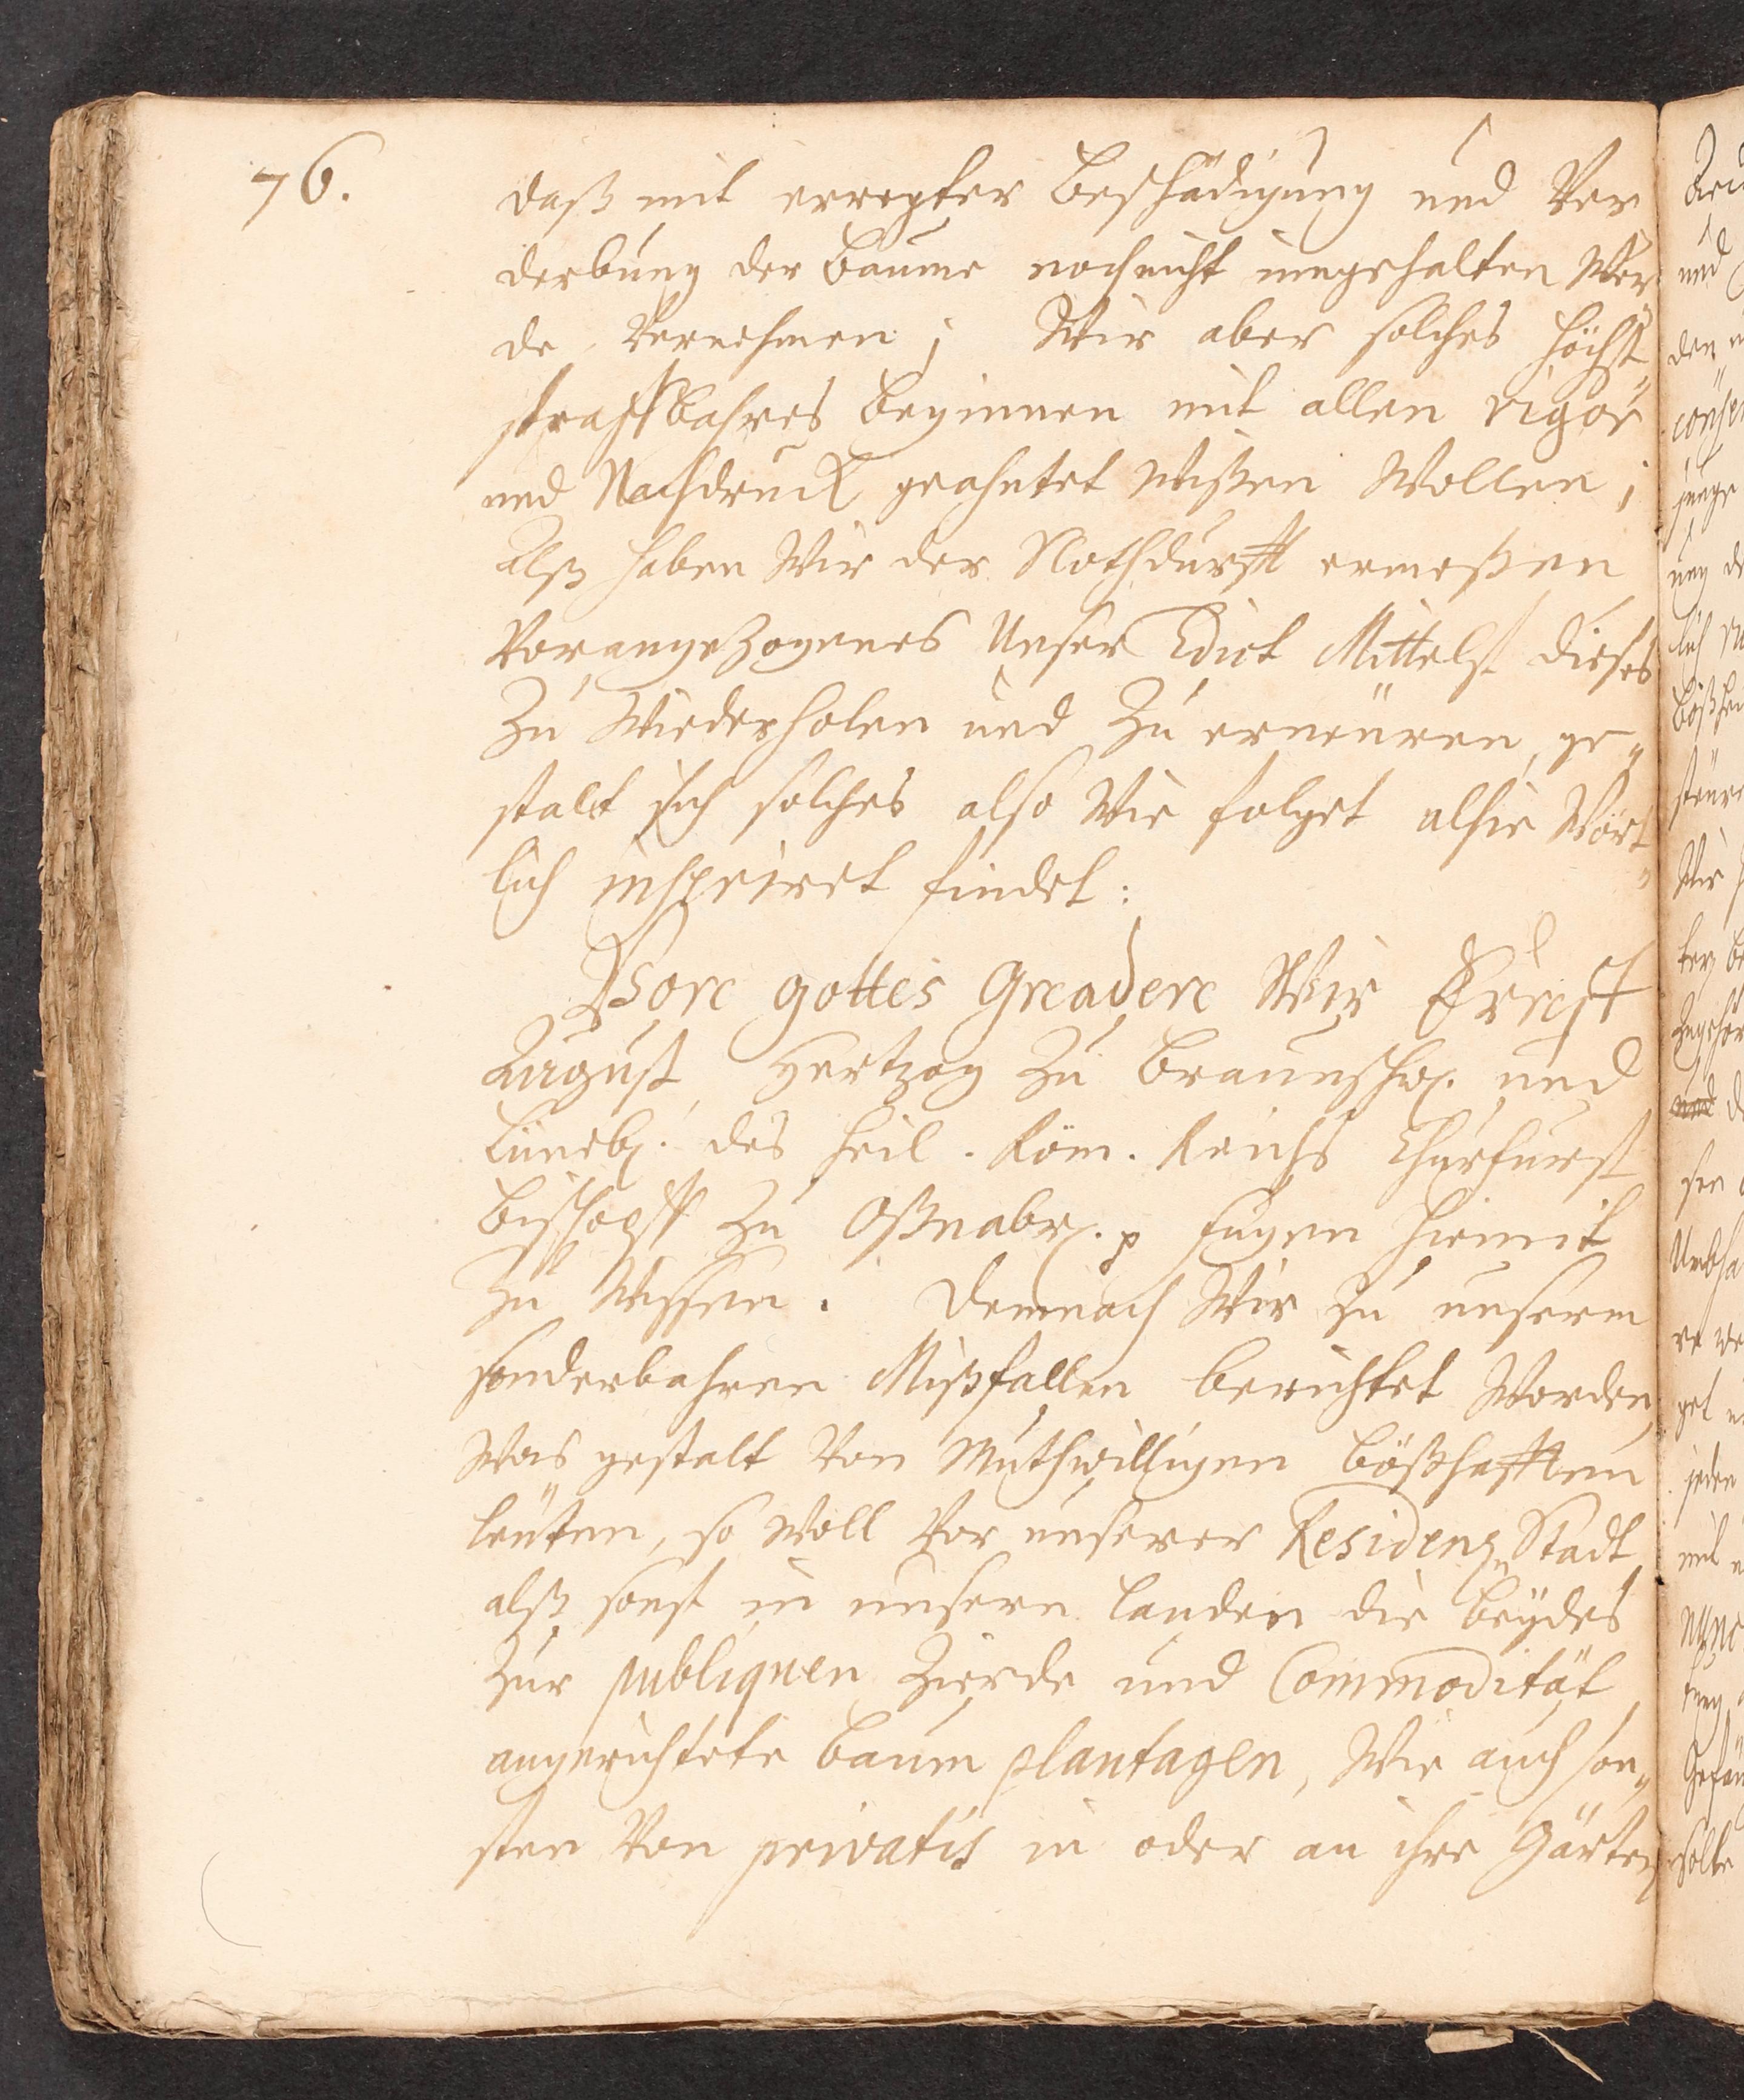 76.
daß mit erregter Beschädigung und Ver
derbung der Baume noch nicht eingehalten Wer
de vernehmen; Wir aber solches höchst„
straffbahres Beginnen mit allen rigör
und Nachdruck geahntet wißen Wollen;
Alß haben Wir der Nothdurfft ermeßen
Vorangezogenes Unser Edict Mittelst dieses
Zu Wiederholen und Zu erneüren, ge„
stalt sich solches also Wie folget alhie Wört„
lich inseriret findet:
Von Gottes Gnaden Wir Ernst
August Hertzog Zu Braunschw. und
Lüneb. des Heil. Röm. Reichs Churfürst
Bischoff Zu Oßnabr. p fügen hiemit
Zu Wissen. Demnach Wir Zu unserm
sonderbahren Mißfallen berichtet Worden,
Was gestalt von Muthwilligen boßhafften
leüten, so Woll Vor unserer Residenz Stadt
alß sonst in unsern Landen die beÿdes
Zur publiquen Zierde und Commodität
angerichtete Baum plantagen, Wie auch son„
sten Von privatis in oder an ihre Gärten